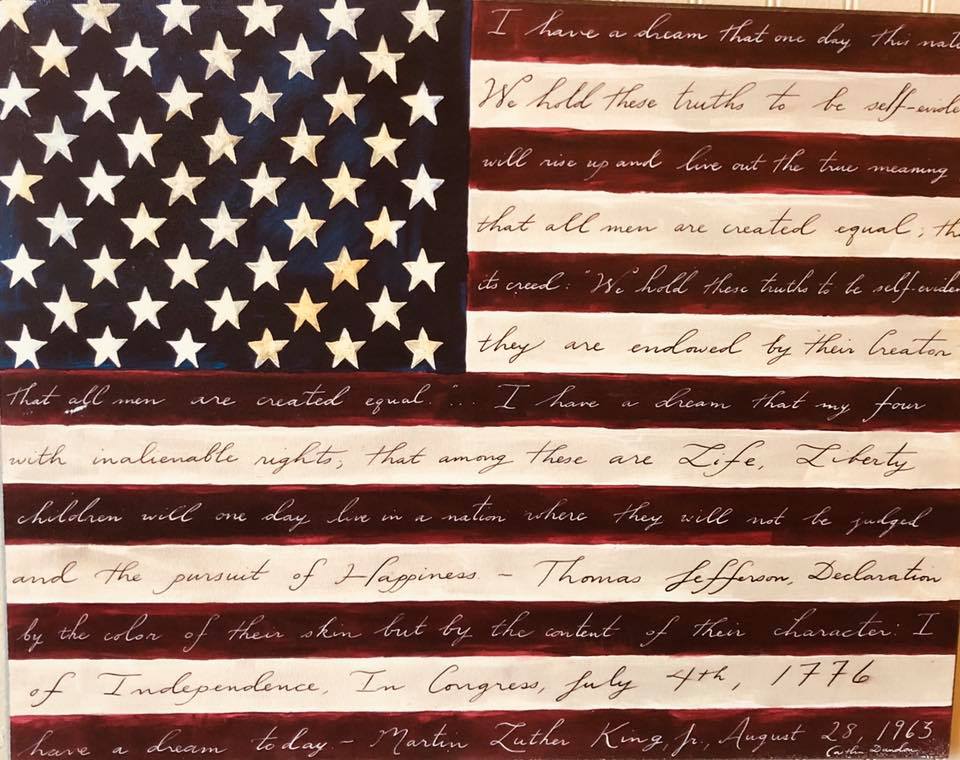 I have a dream that one day this nat
We hold these truths to be self-evide
will rise up and live out the true meaning
that all men are created equal; th
its creed: "We hold these truths to be self-eviden
they are endowed by their Creator
that all men are created equal." ... I have a dream that my four
with inalienable rights; that among these are Life, Liberty
children will one day live in a nation where they will not be judged
and the pursuit of Happiness - Thomas Jefferson, Declaration
by the color of their skin but by the content of their character. I
of Independence, In Congress, July 4th, 1776
have a dream today. - Martin Luther King, Jr., August 28, 1963
Caitlin Dundon